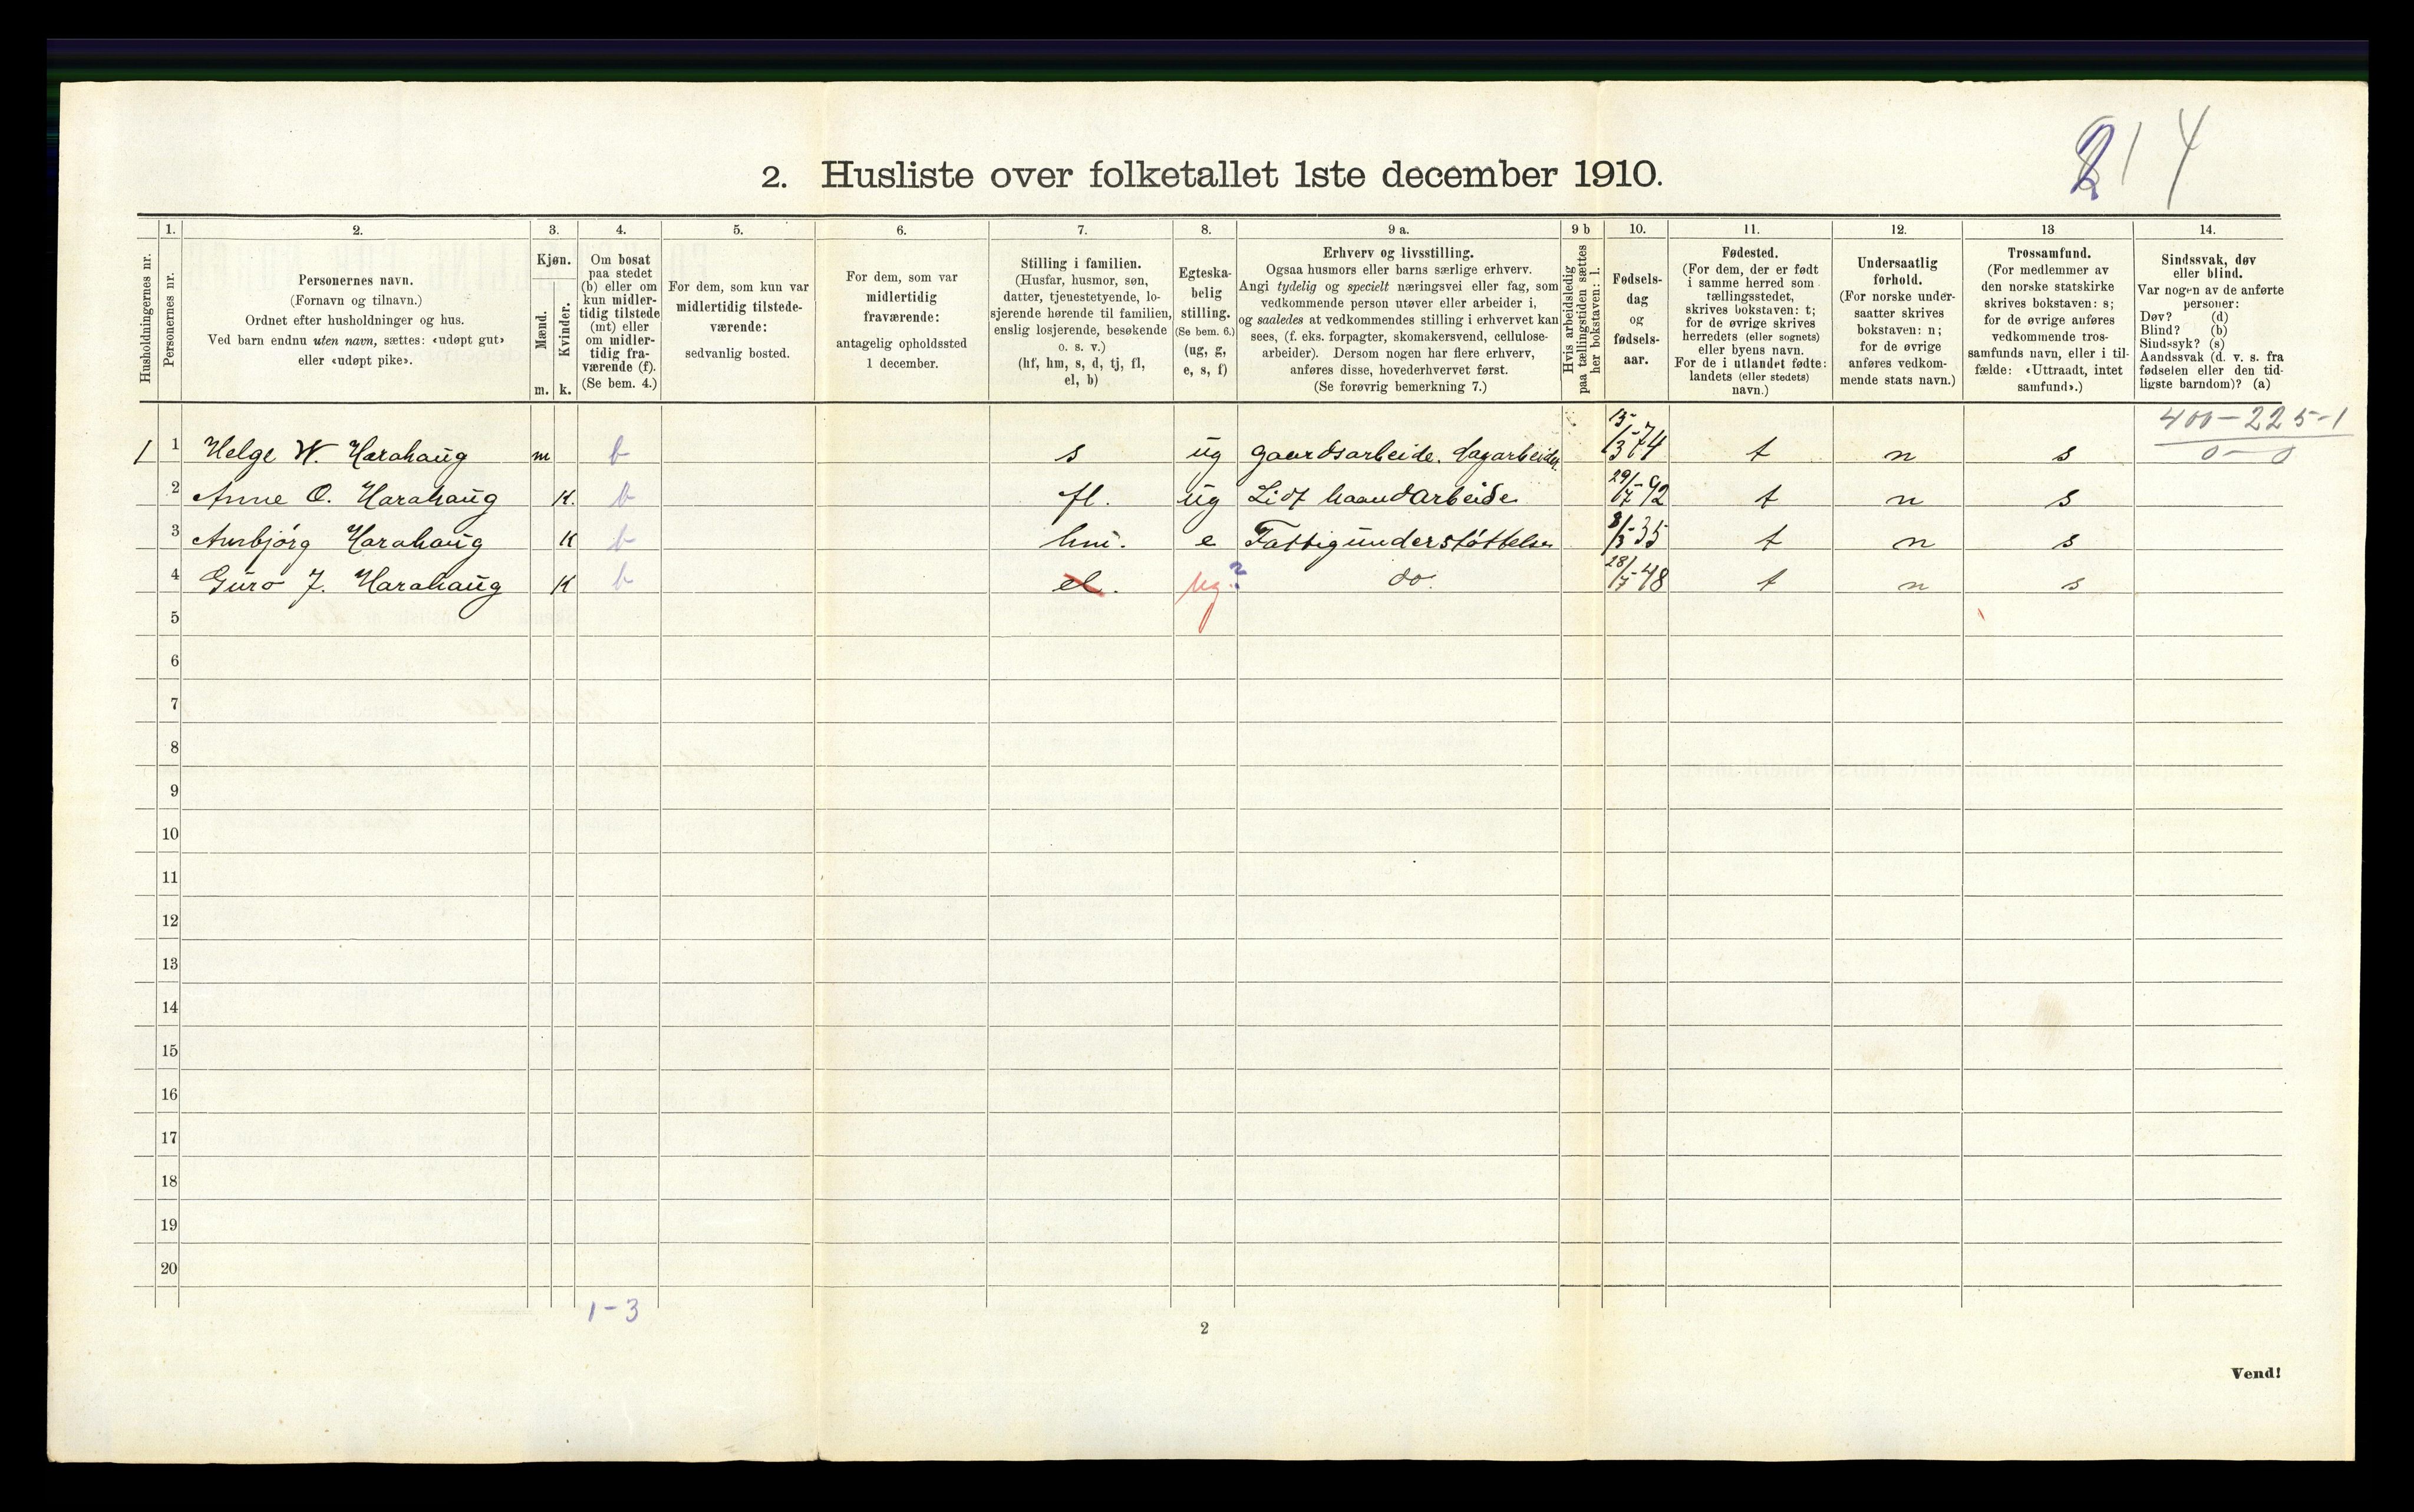 214
2. Husliste over folketallet 1ste december 1910.
1. 2. 3. 4. 5. 6. 7. 8. 9 a. 9 b 10. 11. 12. 13 14.
Husholdningernes nr.
Personernes nr.
Personernes navn.
(Fornavn og tilnavn.)
Ordnet efter husholdninger og hus.
Ved barn endnu uten navn, sættes: «udøpt gut»
eller «udøpt pike».
Kjøn.
Mænd.
Kvinder.
m. k.
Om bosat
paa stedet
(b) eller om
kun midler-
tidig tilstede
(mt) eller
om midler-
tidig fra-
værende (f).
(Se bem. 4.)
For dem, som kun var
midlertidig tilstede-
værende:
sedvanlig bosted.
For dem, som var
midlertidig
fraværende:
antagelig opholdssted
1 december.
Stilling i familien.
(Husfar, husmor, søn,
datter, tjenestetyende, lo-
sjerende hørende til familien,
enslig losjerende, besøkende
o. s. v.)
(hf, hm, s, d, tj, fl,
el, b)
Egteska-
belig
stilling.
(Se bem. 6.)
(ug, g,
e, s, f)
Erhverv og livsstilling.
Ogsaa husmors eller barns særlige erhverv.
Angi tydelig og specielt næringsvei eller fag, som
vedkommende person utøver eller arbeider i,
og saaledes at vedkommendes stilling i erhvervet kan
sees, (f. eks. forpagter, skomakersvend, cellulose-
arbeider). Dersom nogen har flere erhverv,
anføres disse, hovederhvervet først.
(Se forøvrig bemerkning 7.)
Hvis arbeidsledig
paa tællingstiden sættes
her bokstaven: l.
Fødsels-
dag
og
fødsels-
aar.
Fødested.
(For dem, der er født
i samme herred som
tællingsstedet,
skrives bokstaven: t;
for de øvrige skrives
herredets (eller sognets)
eller byens navn.
For de i utlandet fødte:
landets (eller stedets)
navn.)
Undersaatlig
forhold.
(For norske under-
saatter skrives
bokstaven: n;
for de øvrige
anføres vedkom-
mende stats navn.)
Trossamfund.
(For medlemmer av
den norske statskirke
skrives bokstaven: s;
for de øvrige anføres
vedkommende tros-
samfunds navn, eller i til-
fælde: «Uttraadt, intet
samfund».)
Sindssvak, døv
eller blind.
Var nogen av de anførte
personer:
Døv? (d)
Blind? (b)
Sindssyk? (s)
Aandssvak (d. v. s. fra
fødselen eller den tid-
ligste barndom)? (a)
400-225-1
0-0
1 1 Helge W. Harahaug m b s ug gaardsarbeide. dagarbeider 15/3-74 t n s
2 Anne O. Harahaug K. b fl. ug Lidt haandarbeide 29/-92 t n s
3 Ambjörg Harahaug K b hm. e Fattigunderstøttelse 8/3-35 t n s
4 Guro J. Harahaug K b el. ug.? do. 28/7-48 t n s
5
6
7
8
9
10
11
12
13
14
15
16
17
18
19
20
1-3
2
Vend!